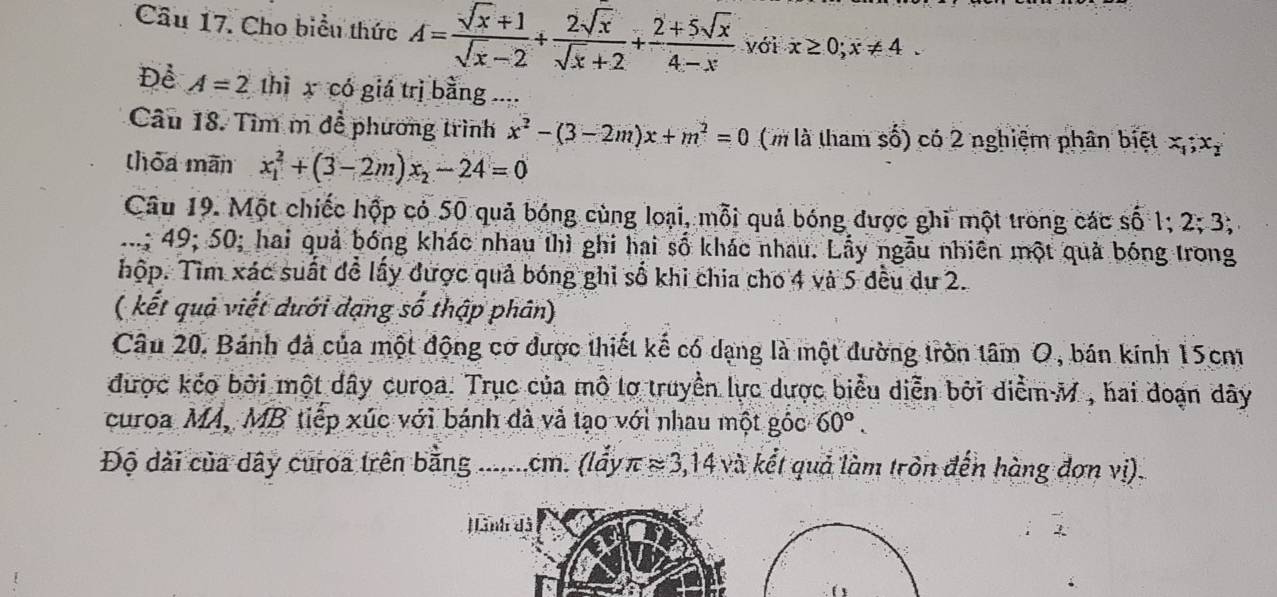 Câu 17. Cho biểu thức A = (√x + 1)/(√x − 2) + (2√x)/(√x + 2) + (2 + 5√x)/(4 − x) với x ≥ 0; x ≠ 4 .
Để A = 2 thì x có giá trị bằng ....
Câu 18. Tìm m để phương trình x² − (3 − 2m)x + m² = 0 (m là tham số) có 2 nghiệm phân biệt x₁; x₂
thỏa mãn x₁² + (3 − 2m)x₂ − 24 = 0
Câu 19. Một chiếc hộp có 50 quả bóng cùng loại, mỗi quả bóng được ghi một trong các số 1; 2; 3;
...; 49; 50; hai quả bóng khác nhau thì ghi hai số khác nhau. Lấy ngẫu nhiên một quả bóng trong
hộp. Tìm xác suất để lấy được quả bóng ghi số khi chia cho 4 và 5 đều dư 2.
( kết quả viết dưới dạng số thập phân)
Câu 20. Bánh đà của một động cơ được thiết kế có dạng là một đường tròn tâm O, bán kính 15cm
được kéo bởi một dây curoa. Trục của mô tơ truyền lực được biểu diễn bởi điểm M , hai đoạn dây
curoa MA, MB tiếp xúc với bánh đà và tạo với nhau một góc 60°.
Độ dài của dây curoa trên bằng .......cm. (lấy π ≈ 3,14 và kết quả làm tròn đến hàng đơn vị).
Bánh đà